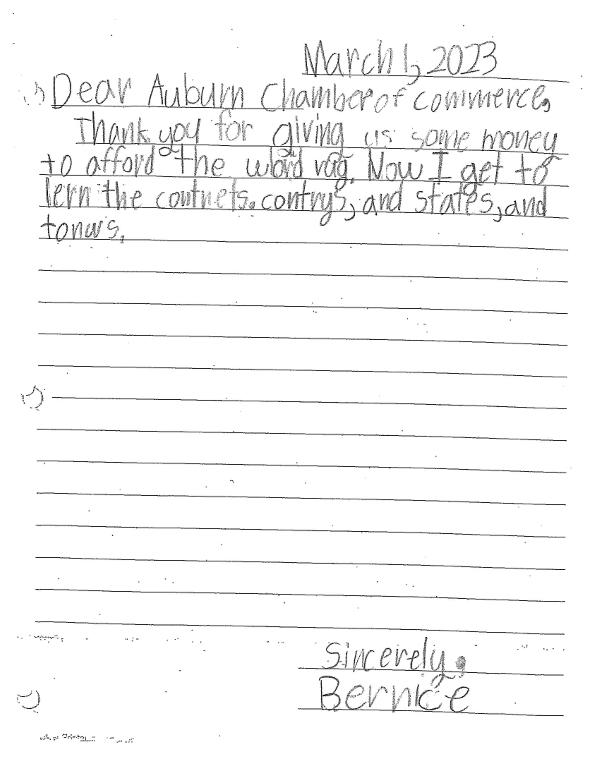 March 1, 2023
Dear Auburn Chamber of commerce,
Thank you for giving us some money
to afford the world rag. Now I get to
lern the contnets. contrys, and states, and
tonws.
Sincerely,
Bernice